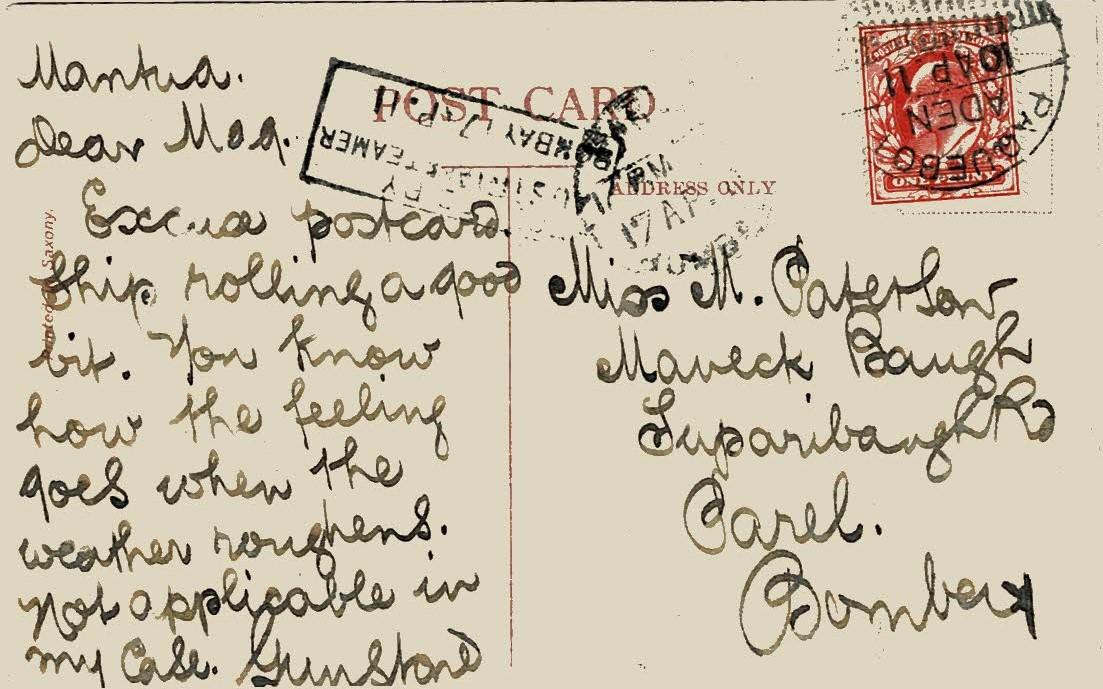 POST CARD
ADDRESS ONLY
Printed Saxony.
Mantua.
Dear Meg.
Excuse postcard.
Ship rolling a good
bit. You know
how the feeling
goes when the
weather roughens.
Not applicable in
my case. Gunstone
Miss M. Paterson
Maneck Baugh
Suparibaugh Rd
Parel.
Bombay
PAQUEBOT
ADEN
10 AP 11
ONE PENNY
BOMBAY 17 AP. 11
STEAMER
17 AP